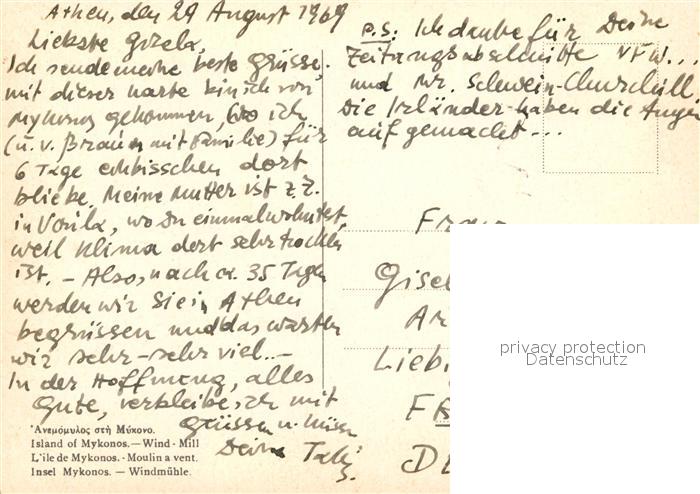 Athen, den 29 August 1969
Liebste Gizela,
Ich sende meine beste Grüsse.
mit dieser Karte bin ich von
Mykonos gekommen, wo ich
(u. v. Braun mit Familie) für
6 Tage einbisschen dort
bliebe. Meine Mutter ist z.Z.
in Voula, wo Du einmal wohntest,
weil Klima dort sehr trocken
ist. – Also, nach ca. 35 Tagen
werden wir Sie in Athen
begrüssen und das warten
wir sehr-sehr viel..–
In der Hoffnung, alles
Gute, verbleibe ich mit
Grüssen u. Küssen
Deine
P.S: Ich danke für Deine
Zeitungsabschnitte VFW...
und Mr. Schwein-Churchill.
Die Irländer haben die Augen
auf gemacht...
Frau
Gisel
Ar
Liebi
F
D
privacy protection
Datenschutz
Ἀνεμόμυλος στὴ Μύκονο.
Island of Mykonos. — Wind - Mill
L'ile de Mykonos. - Moulin a vent.
Insel Mykonos. — Windmühle.